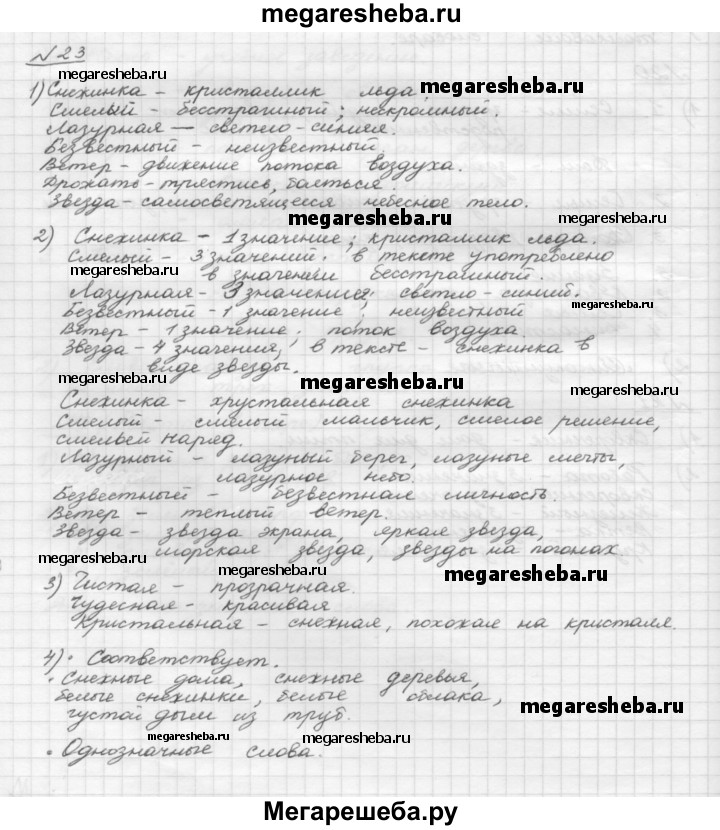 megaresheba.ru
№23
megaresheba.ru
1) Снежинка - кристаллик льда.
megaresheba.ru
Смелый - бесстрашный; нескромный.
Лазурная — светло-синяя.
megaresheba.ru
Безвестный - неизвестный.
megaresheba.ru
Ветер - движение потока воздуха.
Дрожать - трястись, бояться.
Звезда - самосветящееся небесное тело.
megaresheba.ru
2) Снежинка - 1 значение; кристаллик льда.
megaresheba.ru
Смелый - 3 значения: в тексте употреблено
в значении бесстрашный.
megaresheba.ru
Лазурная - 3 значения: светло-синий.
Безвестный - 1 значение; неизвестный
megaresheba.ru
Ветер - 1 значение: поток воздуха.
Звезда - 4 значения; в тексте - снежинка в
виде звезды.
megaresheba.ru
megaresheba.ru
megaresheba.ru
Снежинка - хрустальная снежинка
Смелый - смелый мальчик, смелое решение,
смелый наряд.
megaresheba.ru
Лазурный - лазуный берег, лазуные мечты,
лазурное небо.
megaresheba.ru
Безвестный - безвестная личность.
Ветер - теплый ветер.
megaresheba.ru
Звезда - звезда экрана, яркая звезда,
морская звезда, звезды на погонах
megaresheba.ru
megaresheba.ru
3) Чистая - прозрачная.
Чудесная - красивая
megaresheba.ru
Кристальная - снежная, похожая на кристалл.
4) • Соответствует.
megaresheba.ru
• Снежные дома, снежные деревья,
белые снежинки, белые облака,
густой дым из труб.
megaresheba.ru
megaresheba.ru
• Однозначные слова.
megaresheba.ru
Мегарешеба.ру